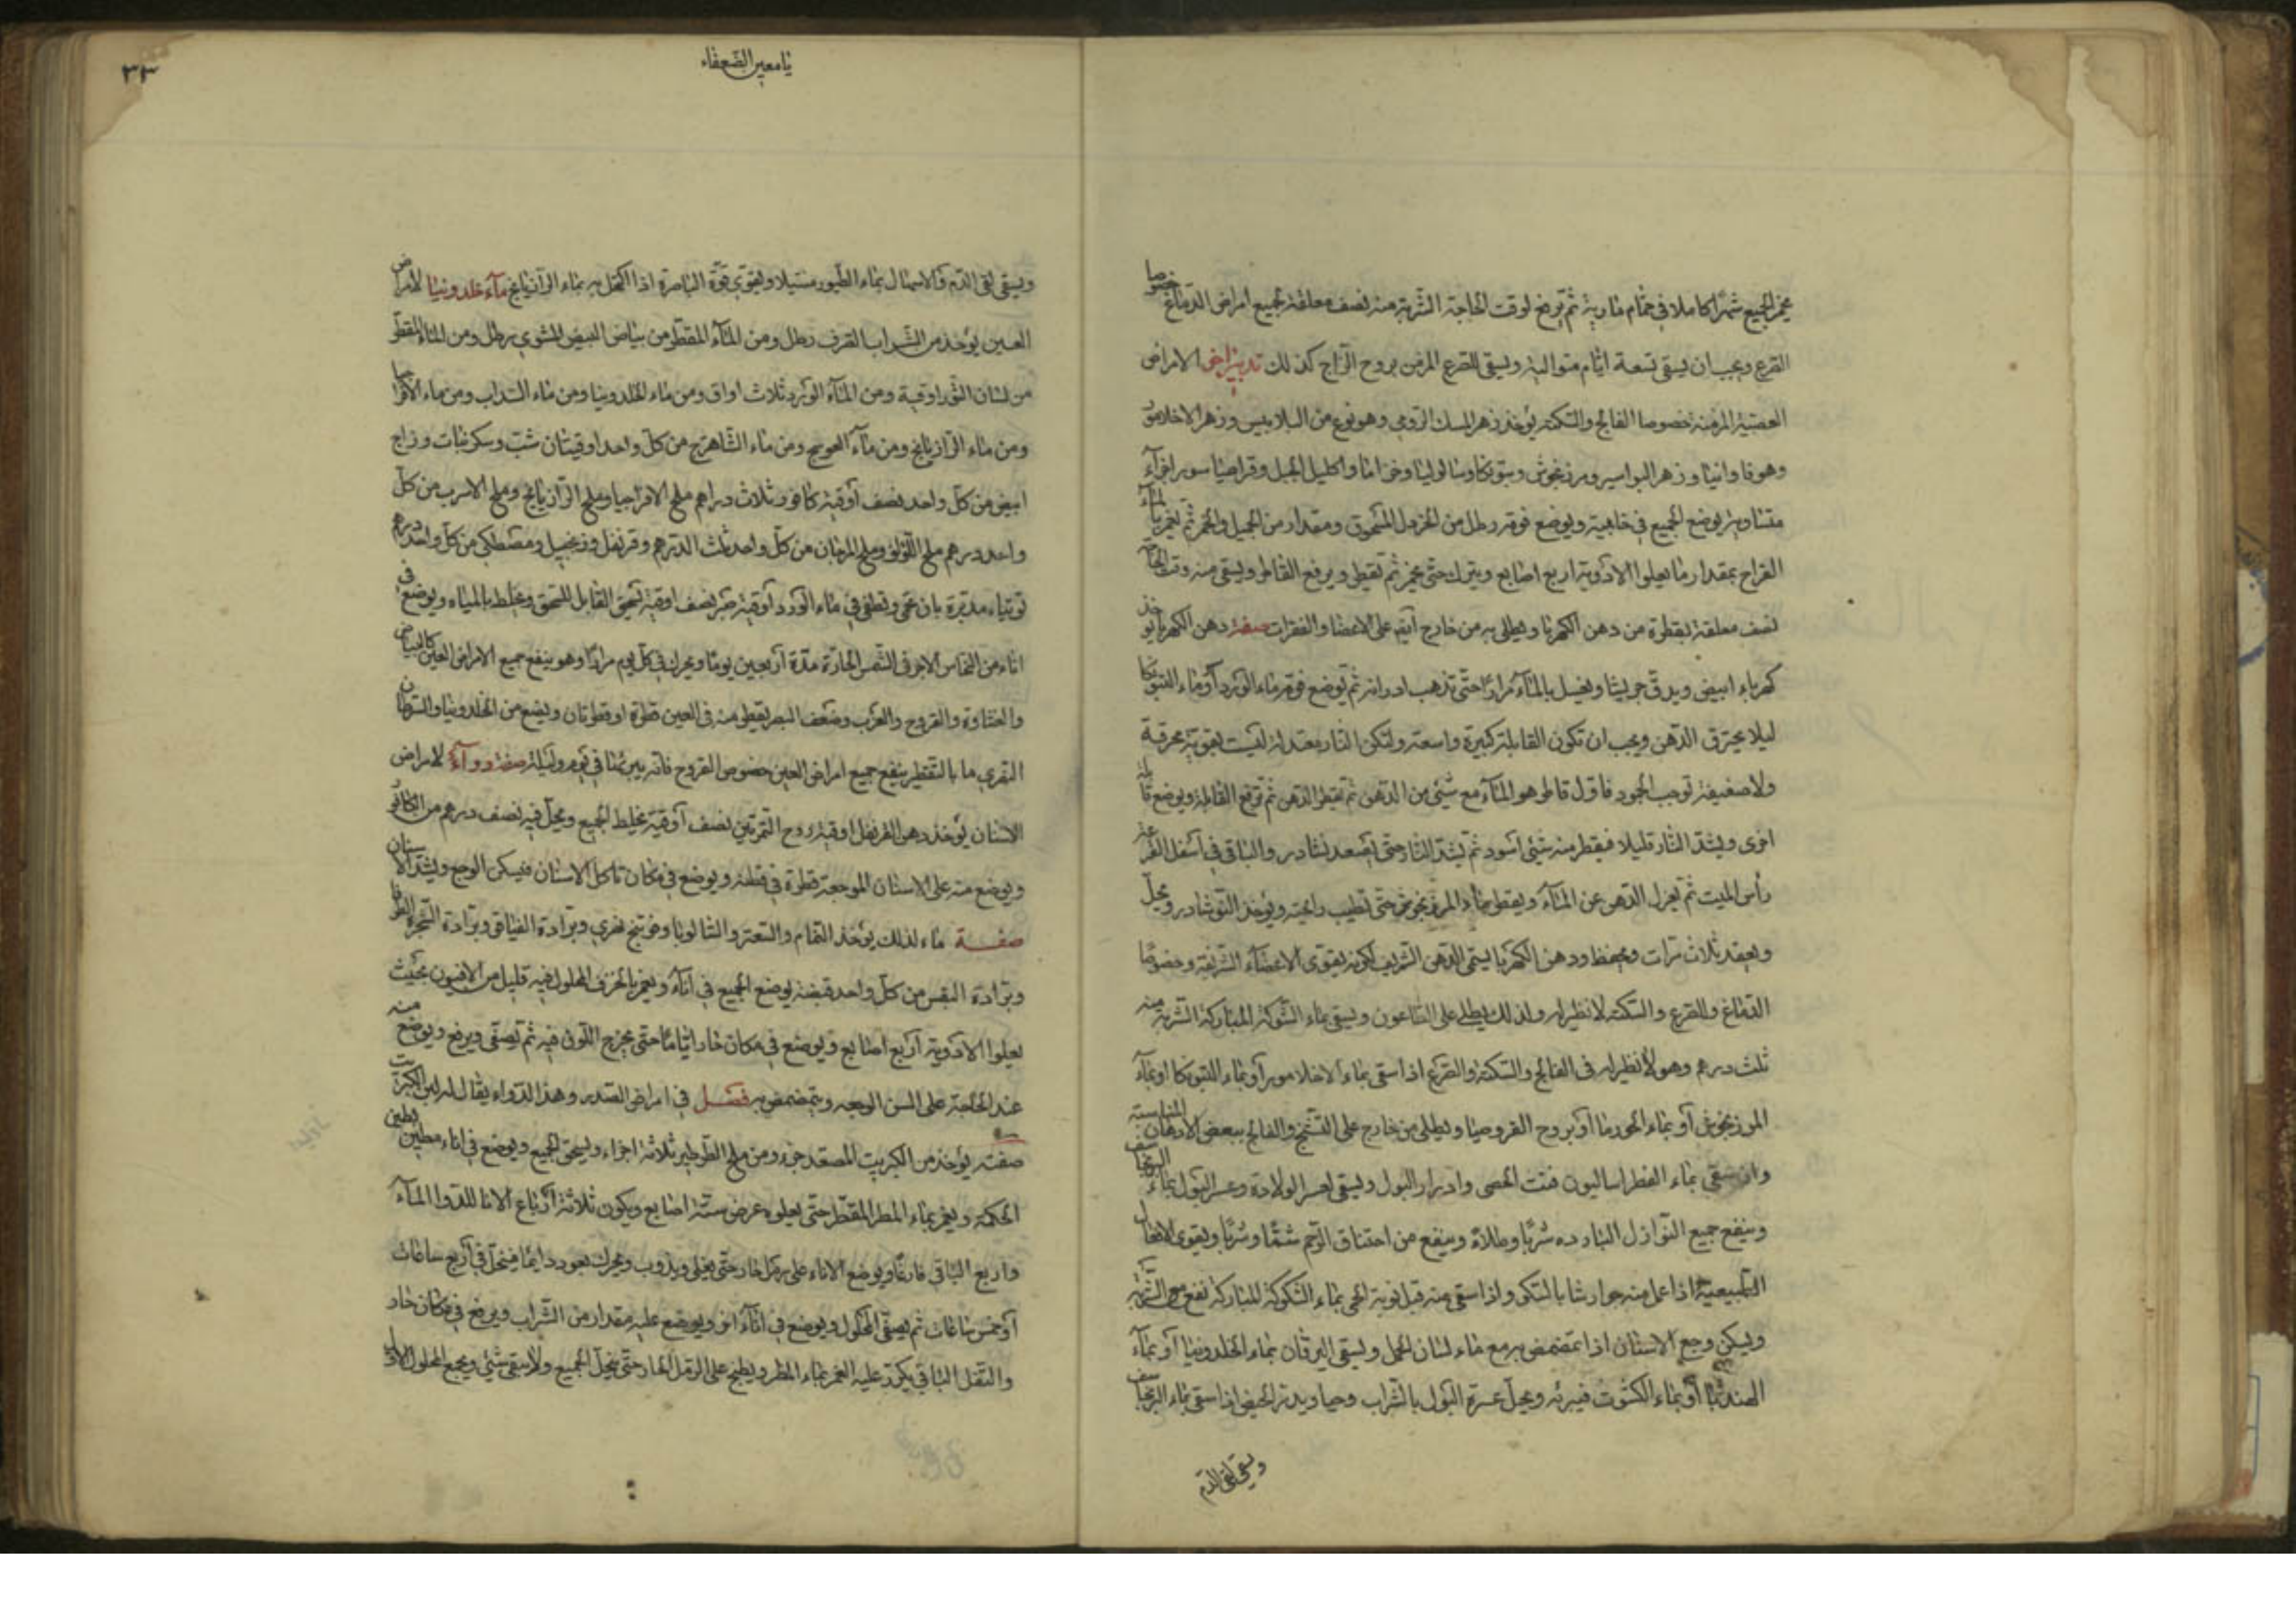 يخمر الجميع شهرا كاملا في حمام مارية ثم يرفع لوقت الحاجة الشربة منه نصف معلقة لجميع امراض الدماغ خصوصا
القرع ويجب ان يسقى تسعة ايام متوالية ويسقى للقرع المزمن بروح الزاج كذلك تدبير اخر الامراض
العصبية المزمنة خصوصا الفالج والسكتة يؤخذ زهر المسك الرومي وهو نوع من البلابيس وزهر الاخلاموز
وهو فاوانيا وزهر البواسير ومرزنجوش وستونكا وسالوليا وخزاما واكليل الجبل وقراصيا سود اجزآء
متساوية يوضع الجميع في خابية ويوضع فوقه رطل من الخردل المسحوق ومقدار من الجميل والخمر ثم يغمر بالمآء
القراح بمقدار ما يعلوا الادوية اربع اصابع ويترك حتى يخمر ثم يقطر ويرفع القاطر ويسقى منه وقت الحاجة
نصف معلقة بقطرة من دهن الكهربا ويطلى به من خارج ايضا على الاعضا والفقرات صفة دهن الكهربا يؤخذ
كهرباء ابيض ويدق جريشا ويغسل بالمآء مرارا حتى تذهب ادرانه ثم يوضع فوقه ماء الورد أو ماء البتونكا
ليلا يحترق الدهن ويجب ان تكون القابلة كبيرة واسعة ولتكن النار معتدلة ليست بقوية محرقة
ولا ضعيفة توجب الجمود فاول قاطر هو المآء مع شيئ من الدهن ثم يقطر الدهن ثم ترفع القابلة ويوضع قابلة
اخرى ويشد النار قليلا فيقطر منه شيئ اسود ثم يشد النار حتى يصعد نشادر والباقى في اسفل القرعة
رأس الميت ثم يعزل الدهن عن المآء ويقطر بماء المرزنجوش حتى تطيب رائحته ويؤخذ النوشادر ويحل
ويعقد ثلاث مرات ويحفظ ودهن الكهربا يسمى الدهن الشريف لكونه يقوى الاعضآء الشريفة وخصوصا
الدماغ وللقرع والسكتة لا نظير له ولذلك يطلى على الطاعون ويسقى بماء الشوكة المباركة الشربة منه
ثلث درهم وهو لا نظير له في الفالج والسكتة والقرع اذا سقى بماء الاخلاموز أو بماء البتونكا او بمآء
المرزنجوش أو بماء الخورما أو بروح القروصيا ويطلى من خارج على التشنج والفالج ببعض الادهان المناسبة
وان سقى بماء الفطراساليون فتت الحصى وادرار البول ويسقى لعسر الولادة وعسر البول بماء البرنجاسف
وينفع جميع النوازل الباردة شربا وطلاء وينفع من اختناق الرحم شما وشربا ويقوى الافعال
الطبيعية اذا عمل منه جوارشا بالسكر واذا سقى منه قبل نوبة الحمى بماء الشوكة المباركة نفع
ويسكن وجع الاسنان اذا تمضمض به مع ماء لسان الحمل ويسقى اليرقان بماء الخلدونيا أو بمآء
الهندبا أو بماء الكشوت فيبرئه ويحل عسرة البول بالشراب وحيا ويدر الحيض اذا سقى بماء البرنجاسف
ويسقى لقى الدم
يا معين الضعفاء
٣٣
ويسقى لقى الدم والاسهال بماء الطيور مستيلا ويقوى قوة الباصرة اذا اكتحل به بماء الرازيانج مآء خلدونيا لامراض
العين يؤخذ من الشراب القرف رطل ومن المآء المقطر من بياض البيض المشوي رطل ومن الماء المقطر
من لسان الثور اوقية ومن المآء الورد ثلاث اواق ومن ماء الخلدونيا ومن ماء السداب ومن ماء
ومن ماء الرازيانج ومن مآء العوسج ومن ماء الشاهترج من كل واحد اوقيتان شب وسكر نبات وزاج
ابيض من كل واحد نصف أوقية كافور ثلاث دراهم ملح الافراجيا وملح الرازيانج وملح الاسرب من كل
واحد درهم ملح اللؤلؤ وملح المرجان من كل واحد ثلث الدرهم وقرنفل وزنجبيل ومصطكى من كل واحد درهم
توتياء مدبرة بان تحمى وتطفى في ماء الورد أوقية صبر نصف اوقية يسحق القابل للسحق ويخلط بالمياه ويوضع فى
اناء من النحاس الاحمر في الشمس الحارة مدة أربعين يوما ويحرك في كل يوم مرارا وهو ينفع جميع الامراض العين كالبياض
والغشاوة والقروح والغرب وضعف البصر يقطر منه في العين قطرة او قطرتان ويصنع من الخلدونيا والسرطان
النهرى ما بالتقطير ينفع جميع امراض العين خصوص القروح فانه يبرئها في يوم وليلة صفة دوآء لامراض
الاسنان يؤخذ دهن القرنفل اوقية روح الترمنتين نصف أوقية يخلط الجميع ويحل فيه نصف درهم من الكافور
ويوضع منه على الاسنان الموجعة قطرة في قطنة ويوضع في مكان تاكل الاسنان فيسكن الوجع ويشد الاسنان
صفة ماء لذلك يؤخذ النمام والسعتر والشالوبا وفوتنج نهرى وبرادة الفيالق وبرادة الشجرة الطرفا
وبرادة البقس من كل واحد قبضة يوضع الجميع في انآء ويغمر بالخل المحلول فيه قليل من الافيون بحيث
يعلوا الادوية أربع اصابع ويوضع في مكان حار اياما حتى يخرج اللون فيه ثم يصفى ويرفع ويوضع منه
عند الحاجة على السن الوجعه ويتمضمض به فصل في امراض الصدر وهذا الدواء يقال له لبن الكبريت
صفته يؤخذ من الكبريت المصعد جزء ومن ملح الطرطير ثلاثة اجزاء ويسحق الجميع ويوضع في اناء مطين بطين
الحكمة ويغمر بماء المطر المقطر حتى يعلوه عرض ستة اصابع ويكون ثلاثة أرباع الانا للدوا المآء
واربع الباقي فارغا ويوضع الاناء على رمل حار حتى يغلي ويذوب ويحرك بعود دايما فينحل في أربع ساعات
أو خمس ساعات ثم يصفى المحلول ويوضع في انآء اخر ويوضع عليه مقدار من الشراب ويرفع في مكان حار
والثفل الباقي يكرر عليه الغمر بماء المطر ويطبخ على الرمل الحار حتى ينحل الجميع ولا يبقى شيئ ويجمع المحلول الاول